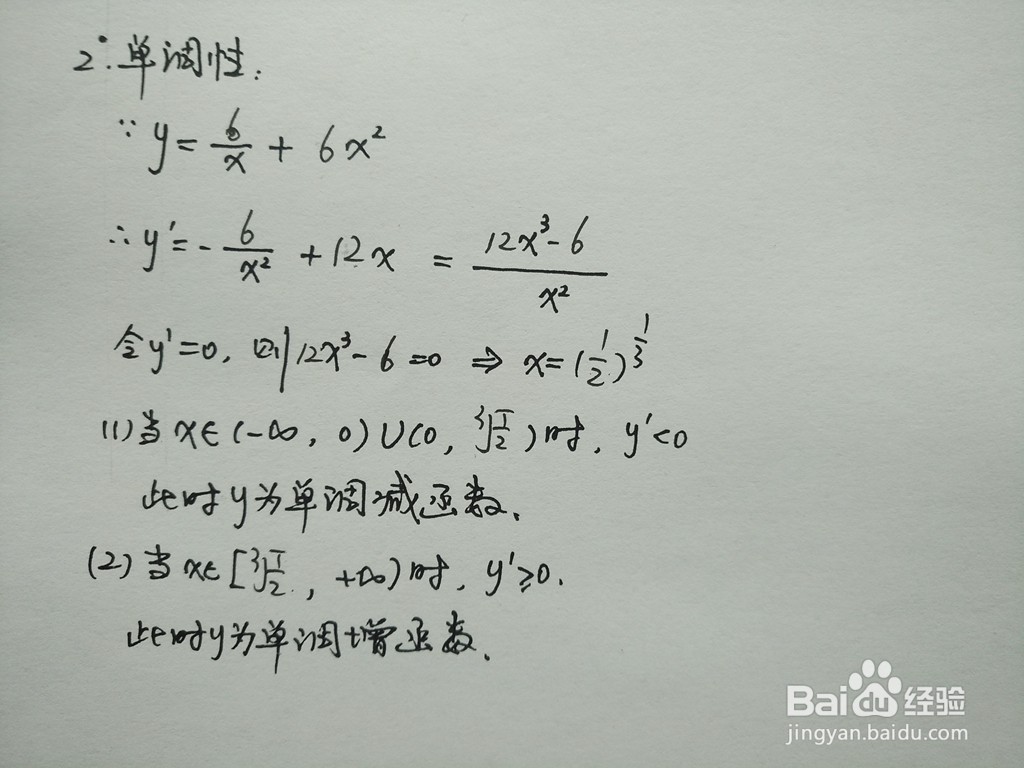 2°. 单调性:
∵ y = 6/x + 6x²
∴ y' = - 6/x² + 12x = (12x³ - 6)/x²
令y'=0, 则12x³ - 6 = 0 ⇒ x = (1/2)^(1/3)
(1)当x∈(-∞, 0)∪(0, ³√(1/2))时, y'<0
此时y为单调减函数.
(2)当x∈[³√(1/2), +∞)时, y'≥0.
此时y为单调增函数.
Bai du 经验
jingyan.baidu.com